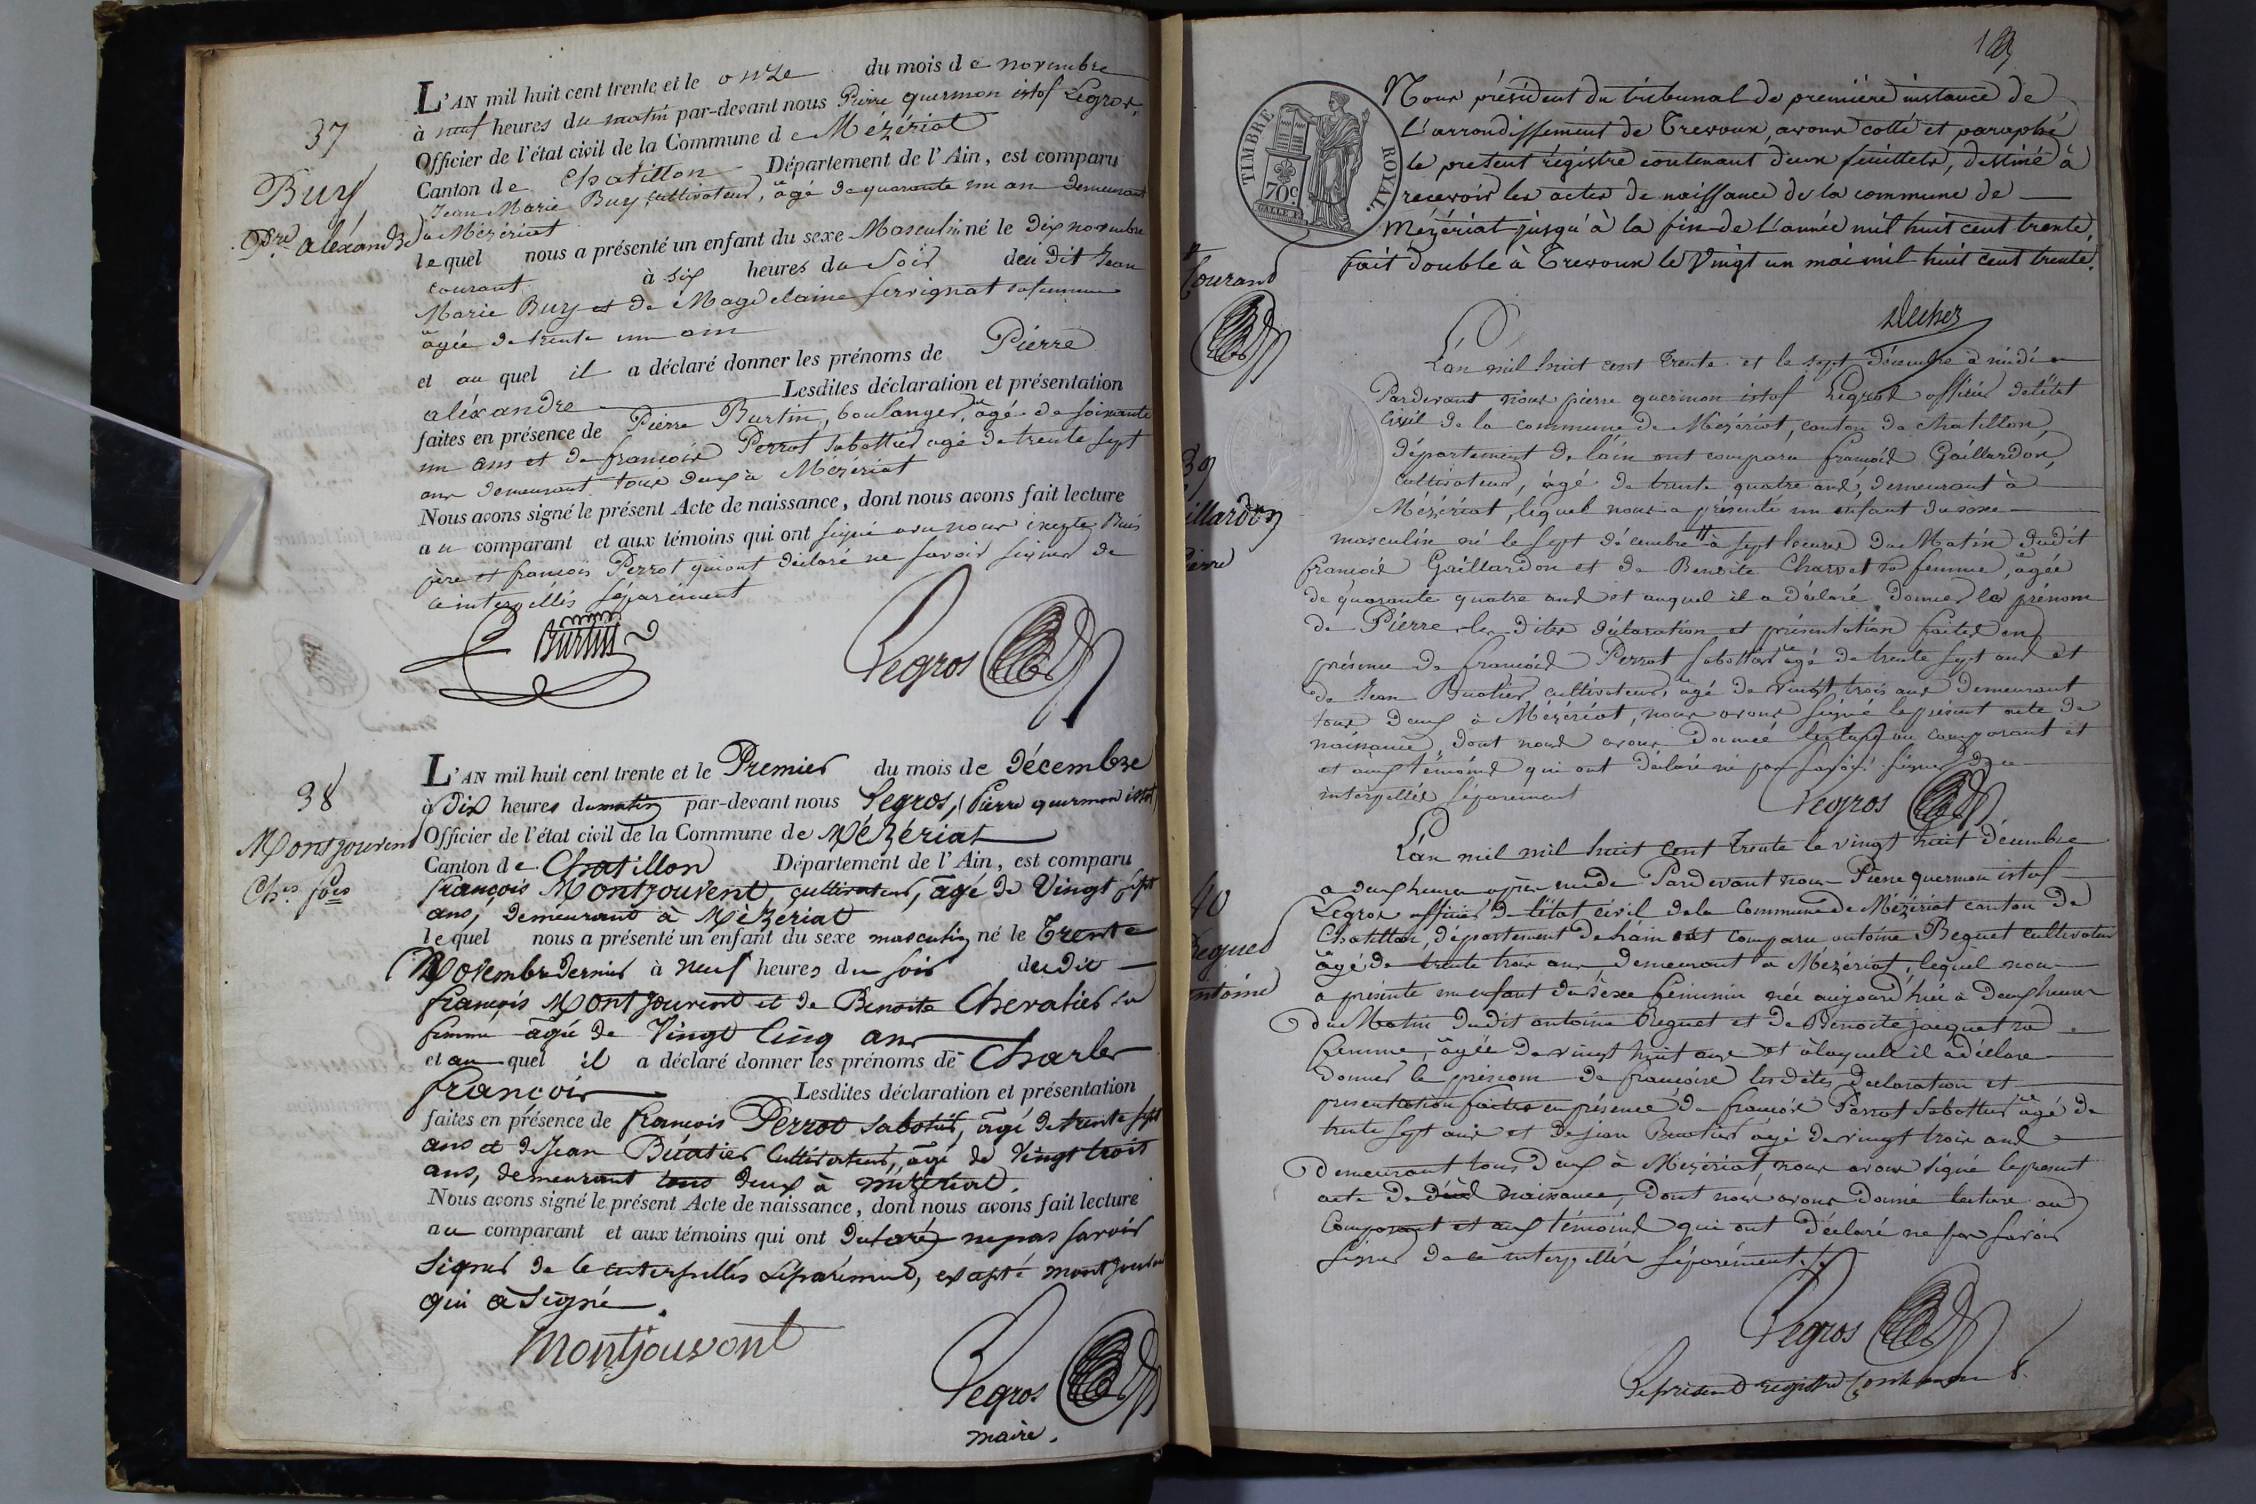 37
Buy
Pre aléxandre
L'AN mil huit cent trente et le onze du mois de novembre
à neuf heures du matin par-devant nous Pierre quermon istof Legros
Officier de l'état civil de la Commune de Mézériat
Canton de Chatillon Département de l'Ain, est comparu
Jean Marie Buy, cultivateur, âgé de quarante un an demeurant
a Mézériat
lequel nous a présenté un enfant du sexe Masculin né le Dix novembre
courant à six heures du Soir dudit Jean
Marie Buy et de Magdelaine servignat sa femme
âgée de trente un ans
et au quel il a déclaré donner les prénoms de Pierre
aléxandre Lesdites déclaration et présentation
faites en présence de Pierre Burtin, boulanger, âgé de soixante
un ans et de françois Perrot sabottier agé de trente sept
ans demeurant tous deux à Mézériat
Nous avons signé le présent Acte de naissance, dont nous avons fait lecture
au comparant et aux témoins qui ont signé avec nous
père et françois Perrot qui ont déclaré ne savoir signer de
ce interpellés séparément
Burtin
Legros
38
Montjouvent
Chs. fois
L'AN mil huit cent trente et le Premier du mois de décembre
à Dix heures du matin par-devant nous Legros, Pierre quermon istof
Officier de l'état civil de la Commune de Mézériat
Canton de Chatillon Département de l'Ain, est comparu
françois Montjouvent, cultivateur, âgé de Vingt sept
ans, demeurant à Mézériat
lequel nous a présenté un enfant du sexe masculin né le Trente
Novembre dernier à neuf heures du soir dudit
françois Montjouvent et de Benoite Chevalier sa
femme agée de Vingt Cinq ans
et au quel il a déclaré donner les prénoms de Charles
françois Lesdites déclaration et présentation
faites en présence de françois Perrot sabotier, âgé de trente sept
ans et de Jean Buatier Cultivateur, âgé de Vingt trois
ans, demeurant tous deux à mézériat.
Nous avons signé le présent Acte de naissance, dont nous avons fait lecture
au comparant et aux témoins qui ont declaré ne pas savoir
Signer de ce interpellés séparément, excepté montjouvent
qui a signé
Montjouvont
Legros
maire.
TIMBRE ROYAL.
70c
Nous président du tribunal de première instance de
L'arrondissement de Trevoux, avons cotté et paraphé
le present régistre contenant deux feuillets, destiné à
recevoir les actes de naissance de la commune de
Mézériat jusqu'à la fin de L'année mil huit cent trente,
fait double à Trevoux le Vingt un mai mil huit cent trente.
Courand
39
illardon
ierre
L'an mil huit cent trente et le sept décembre à midi
Pardevant nous pierre quermon istof Legros officier de l'état
civil de la commune de Mézériat, canton de chatillon,
département de l'ain ont comparu françois Gaillardon,
cultivateur, âgé de trente quatre ans, demeurant à
Mézériat, lequel nous a présenté un enfant du sèxe
masculin né le sept décembre à sept heures du Matin dudit
françois Gaillardon et de Benoite Charvet sa femme, âgée
de quarante quatre ans et auquel il a déclaré donner le prénom
de Pierre les dites déclaration et présentation faites en
présence de françois Perrot sabottier âgé de trente sept ans et
de Jean Buatier cultivateur, âgé de vingt trois ans demeurant
tous deux à Mézériat, nous avons signé le présent acte de
naissance, dont nous avons donné lecture au comparant et
et aux témoins qui ont déclaré ne pas savoir signer de ce
interpellés séparement
Legros
40
Beguet
ntoine
L'an mil mil huit cent trente le vingt huit décembre
a deux heures après midi Pardevant nous Pierre quermon istof
Legros officier de l'état civil de la Commune de Mézériat canton de
Chatillon, département de l'ain est comparu antoine Beguet cultivateur
âgé de trente trois ans demeurant a Mézériat, lequel nous
a présenté un enfant du sèxe féminin née aujourd'hui à deux heures
du Matin dudit antoine Beguet et de Benoite jacquet sa
femme, âgée de vingt huit ans et à laquelle il a déclaré
donner le prénom de françoise les dites declaration et
presentation faites en présence de françois Perrot Sabottier âgé de
trente sept ans et de jean Buatier âgé de vingt trois ans
demeurant tous deux à Mézériat, nous avons signé le présent
acte de naissance, dont nous avons donné lecture au
Comparant et aux témoins qui ont déclaré ne pas savoir
signer de ce interpellés séparément
Legros